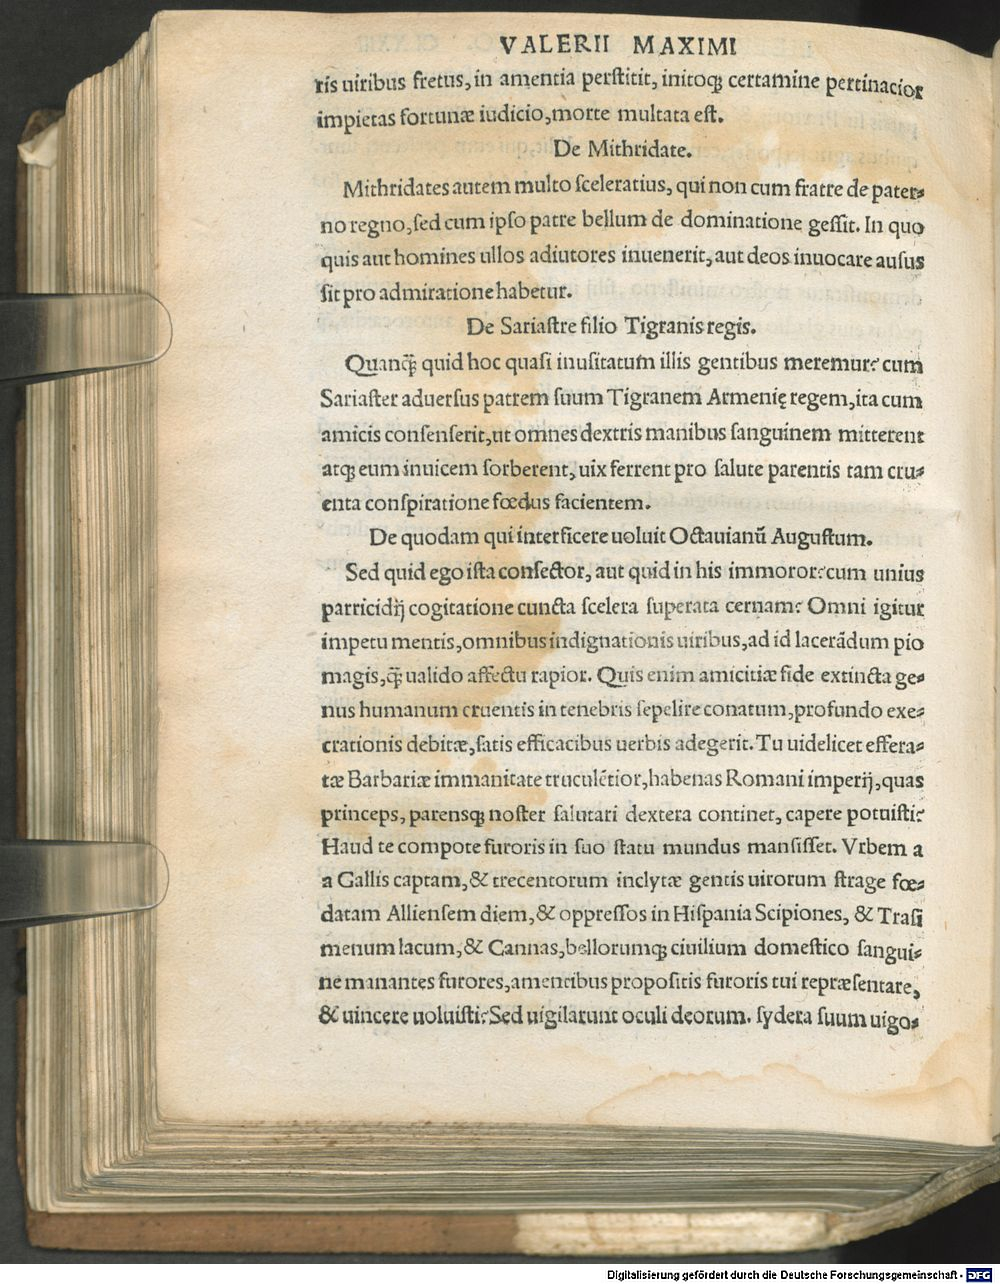 VALERII MAXIMI
ris uiribus fretus, in amentia perſtitit, initoq; certamine pertinacior
impietas fortunæ iudicio, morte multata eſt.
De Mithridate.
Mithridates autem multo ſceleratius, qui non cum fratre de pater-
no regno, ſed cum ipſo patre bellum de dominatione geſſit. In quo
quis aut homines ullos adiutores inuenerit, aut deos inuocare auſus
ſit pro admiratione habetur.
De Sariaſtre filio Tigranis regis.
Quanq̃ quid hoc quaſi inuſitatum illis gentibus meremur? cum
Sariaſter aduerſus patrem ſuum Tigranem Armenię regem, ita cum
amicis conſenſerit, ut omnes dextris manibus ſanguinem mitterent
atq; eum inuicem ſorberent, uix ferrent pro ſalute parentis tam cru-
enta conſpiratione fœdus facientem.
De quodam qui interficere uoluit Octauianũ Auguſtum.
Sed quid ego iſta conſector, aut quid in his immoror? cum unius
parricidij cogitatione cuncta ſcelera ſuperata cernam? Omni igitur
impetu mentis, omnibus indignationis uiribus, ad id lacerãdum pio
magis, q̃ ualido affectu rapior. Quis enim amicitiæ fide extincta ge-
nus humanum cruentis in tenebris ſepelire conatum, profundo exe-
crationis debitæ, ſatis efficacibus uerbis adegerit. Tu uidelicet effera-
tæ Barbariæ immanitate truculẽtior, habenas Romani imperij, quas
princeps, parensq; noſter ſalutari dextera continet, capere potuiſti?
Haud te compote furoris in ſuo ſtatu mundus manſiſſet. Vrbem a
a Gallis captam, & trecentorum inclytæ gentis uirorum ſtrage fœ-
datam Allienſem diem, & oppreſſos in Hiſpania Scipiones, & Traſi
menum lacum, & Cannas, bellorumq; ciuilium domeſtico ſangui-
ne manantes furores, amentibus propoſitis furoris tui repræſentare,
& uincere uoluiſti? Sed uigilarunt oculi deorum. ſydera ſuum uigo-
Digitalisierung gefördert durch die Deutsche Forschungsgemeinschaft - DFG